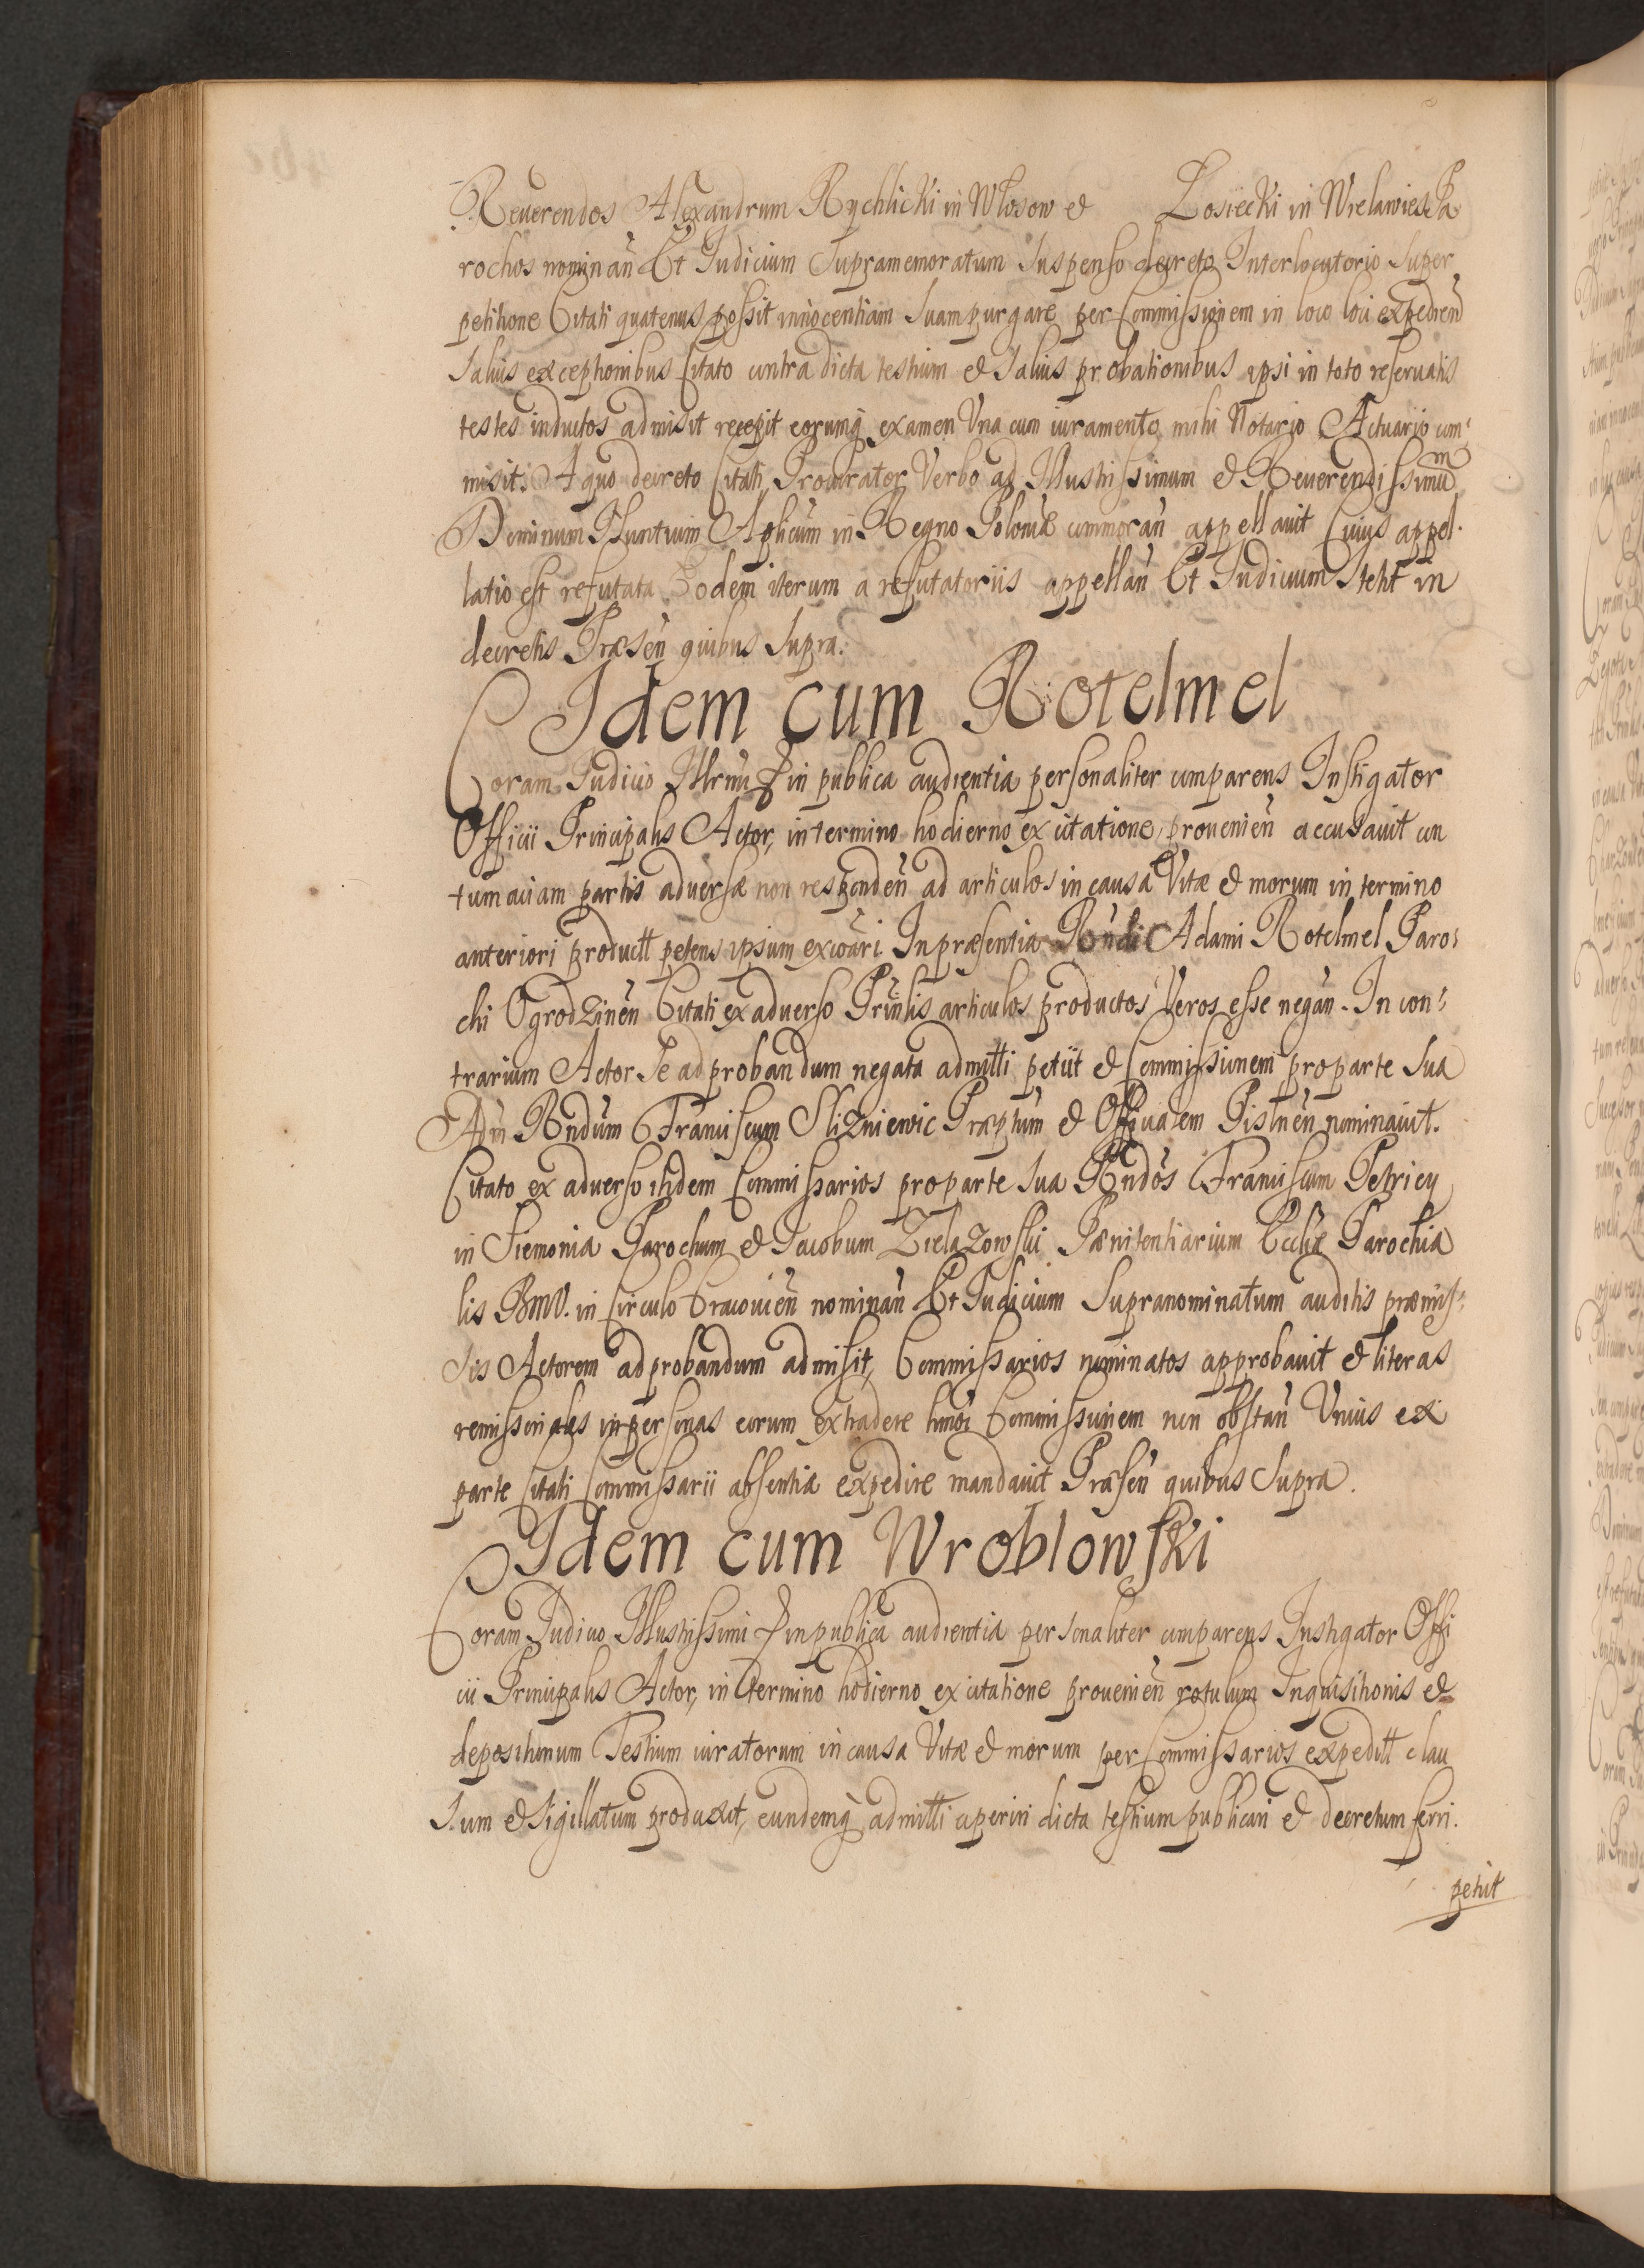 Reuerendos Alexandrum Rychlicki in Włosow et Łosiecki in Wielawies Pa
rochos nominañ Et Iudicium Supramemoratum suspenso decreto Interlocutorio super
petitione Citati quatenus possit innocentiam suam purgare per Commissionem in loco loci expediend
saluis exceptionibus Citato contra dicta testium et saluis probationibus ipsi in toto reseruatis
testes inductos admisit recepit eorumq examen Vna cum iuramento mihi Notario Actuario com
misit. A quo decreto Citati Procurator Verbo ad Illustrissimum et Reuerendissimum
Dominum Nuntium Aplicum in Regno Poloniæ commorañ appellauit Cuius appel
latio est refutata Eodem iterum a refutatoriis appellañ Et Iudicium stetit in
decretis Præseñ quibus supra.
Idem cum Rotelmel
Coram Iudicio Illrmi in publica audientia personaliter comparens Instigator
Officii Principalis Actor, in termino hodierno ex citatione prouenieñ accusauit con
tumaciam partis aduersæ non respondeñ ad articulos in causa Vitæ et morum in termino
anteriori productt petens ipsum excoari In præsentia Rñdi Adami Rotelmel Paro
chi Ogrodzineñ Citati ex aduerso Prinlis articulos productos Veros esse negañ. In con
trarium Actor se ad probandum negata admitti petiit et Commissionem pro parte sua
Adm Rndum Franciscum Slizniewic Præptum et Officialem Pislneñ nominauit.
Citato ex aduerso itidem Commissarios pro parte sua Rndos Franciscum Petricy
in Siemonia Parochum et Iacobum Zielazowski Pænitentiarium Ecclæ Parochia
lis BMV. in Circulo Cracouieñ nominañ Et Iudicium supranominatum auditis præmis
sis Actorem ad probandum admisit, Commissarios nominatos approbauit et literas
remissoriales in personas eorum extradere hmoi Commissionem non obstañ Vnius ex
parte Citati Commissarii absentia expedire mandauit Præseñ quibus supra.
Idem cum Wroblowski
Coram Iudicio Illustrissimi in publica audientia personaliter comparens Instigator Offi
cii Principalis Actor, in termino hodierno ex citatione prouenieñ rotulum Inquisitionis et
depositionum Testium iuratorum in causa Vitæ et morum per Commissarios expeditt clau
sum et sigillatum produxit, eundemq admitti aperiri dicta testium publicari et decretum ferri.
petiit